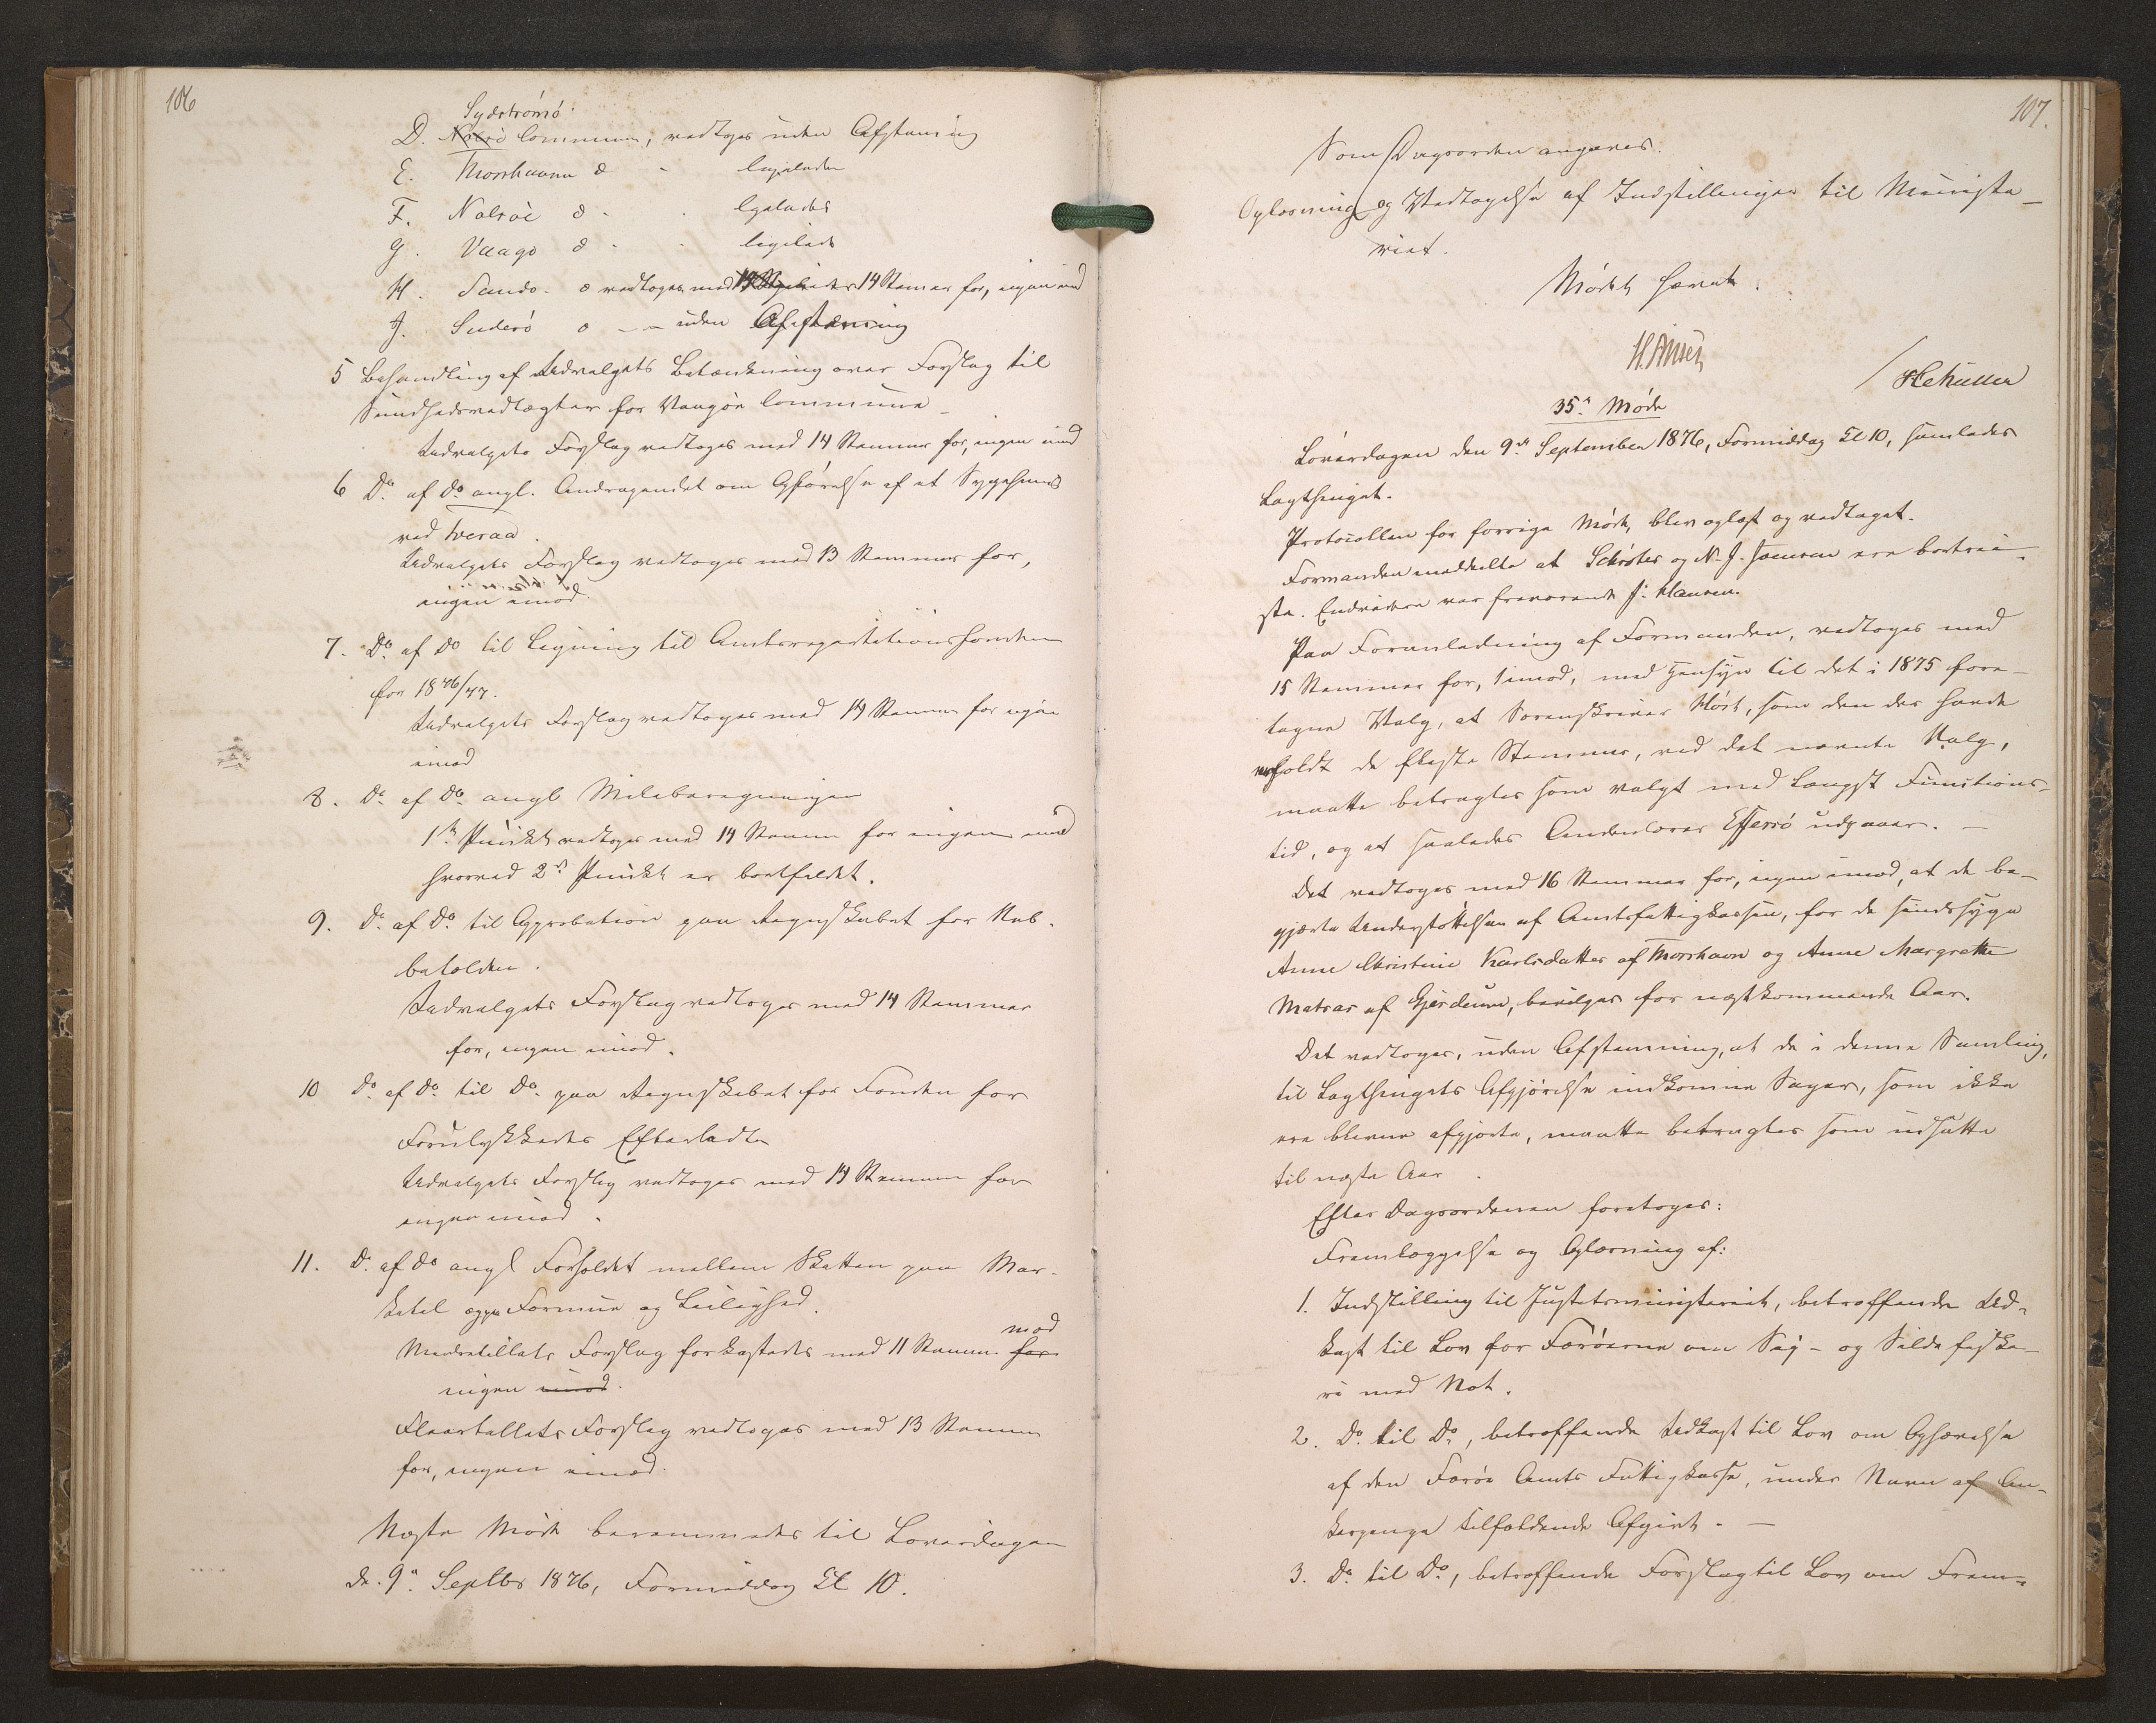 106
Sydstrømø
D. Nolsö Commune, vedtoges uden Afstemning
E. Thorshavn d° - ligeledes
F. Nolsöe d° - ligeledes
G. Vaagø d° - ligeledes
H. Sandø - d° vedtoges med 14 Stemmer for, ingen imod
J. Suderö d° - - uden Afstemning
5 Behandling af Udvalgets Betænkning over Forslag til
Sundhedsvedtægter for Vaagöe Commune -
Udvalgets Forslag vedtoges med 14 Stemmer for, ingen imod
6 D° af d° angl. Andragendet om Opførelse af et Sygehuus
ved Tveraa.
Udvalgets Forslag vedtoges med 13 Stemmer for,
ingen imod.
7. D° af D° til Ligning til Amtsrepartitionsfonden
for 1876/77.
Udvalgets Forslag vedtoges med 14 Stemmer for ingen
imod
8. D° af D° angl Milebaregningen
1ste Punkt vedtoges med 14 Stemmer for ingen imod
hvorved 2det Punkt er bortfaldet.
9. D° af D° til Approbation paa Regnskabet for Neb-
betolden.
Udvalgets Forslag vedtoges med 14 Stemmer
for, ingen imod.
10 D° af D° til D° paa Regnskabet for Fonden for
Forulykkedes Efterladte
Udvalgets Forslag vedtoges med 14 Stemmer for
ingen imod.
11. D° af D° angl Forholdet mellem Skatten paa Mar-
ketal og paa Formue og Leilighed.
mod
Mindretallets Forslag forkastedes med 11 Stemmer for
ingen imod.
Fleertallets Forslag vedtoges med 13 Stemmer
for, ingen imod.
Næste Møde berammedes til Løverdagen
d. 9de Septbr 1876, Formiddag Kl 10.
107.
Som Dagsorden angaves.
Oplæsning og Vedtagelse af Indstillinger til Ministe-
riet.
Mødet hævet.
35te Møde
Løverdagen den 9de September 1876, Formiddag Kl 10, samledes
Lagthinget.
Protocollen for forrige Møde, blev oplæst og vedtaget.
Formanden meddelte at Schrøter og N. J. Joensen ere bortrei-
ste. Endvidere var fraværende J: Hansen.
Paa Foranledning af Formanden, vedtoges med
15 Stemmer for, 1 imod, med Hensyn til det i 1875 fore-
tagne Valg, at Sorenskriver Høst, som den der havde
erholdt de fleste Stemmer, ved det nævnte Valg,
maatte betragtes som valgt med længst Functions-
tid, og at saaledes Andenlærer Effersö udgaaer. -
Det vedtoges med 16 Stemmer for, ingen imod, at de be-
gjærte Understøttelser af Amtsfattigkassen, for de sindssyge
Anne Christine Karlsdatter af Thorshavn og Anne Margrethe
Matras af Gjerdum, bevilges for næstkommende Aar.
Det vedtoges, uden Afstemning, at de i denne Samling,
til Lagthingets Afgjørelse indkomne Sager, som ikke
ere blevne afgjorte, maatte betragtes som udsatte
til næste Aar.
Efter Dagsordenen foretoges:
Fremlæggelse og Oplæsning af:
1. Indstilling til Justitsministeriet, betræffende Ud-
kast til Lov for Færöerne om Sej- og Silde fiske-
ri med Not.
2. D° til D°, betræffende Udkast til Lov om Ophævelse
af den Færöe Amts Fattigkasse, under Navn af An-
kerpenge tilfaldende Afgivt. -
3. D° til D°, betræffende Forslag til Lov om Frem-